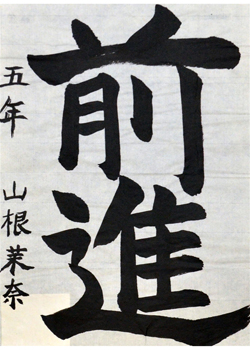 前進
五年 山根茉奈